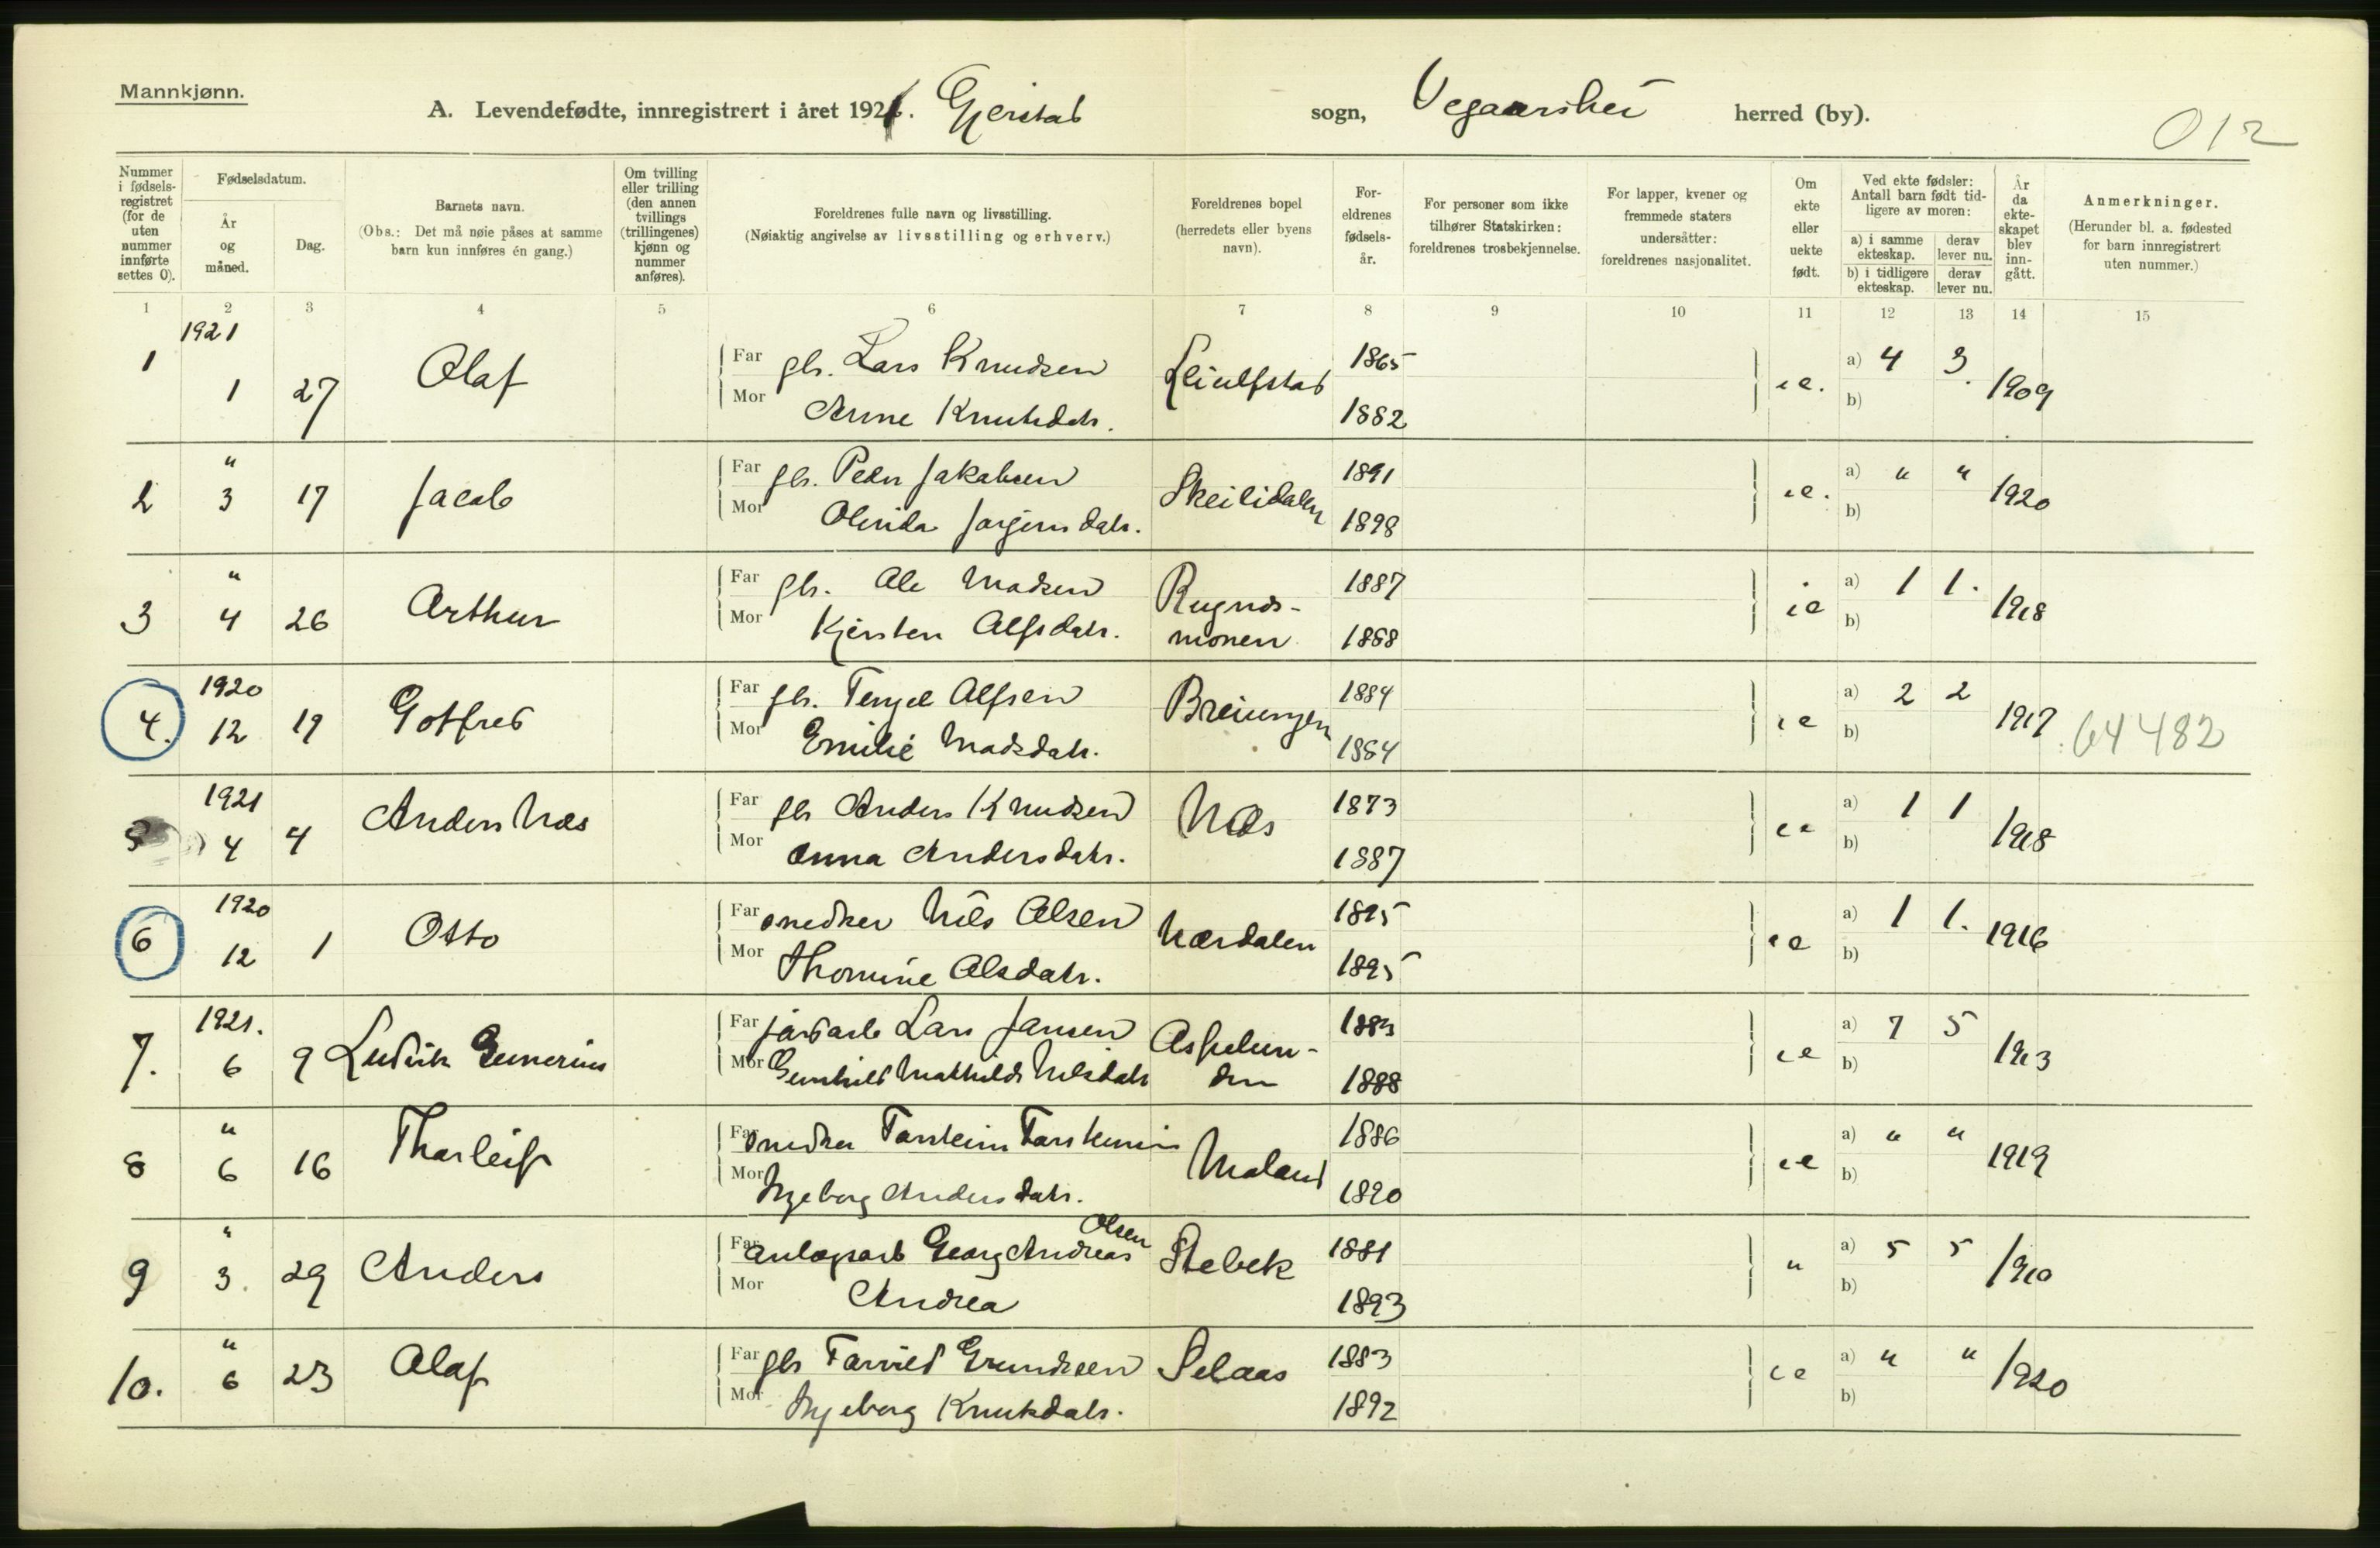 Mannkjønn.
A. Levendefødte, innregistrert i året 1921. Gjerstad sogn, Vegaarshei herred (by).
012
Nummer i fødsels-registret (for de uten nummer innførte settes 0).
Fødselsdatum.
År og måned.
Dag.
Barnets navn.
(Obs.: Det må nøie påses at samme barn kun innføres én gang.)
Om tvilling eller trilling (den annen tvillings (trillingenes) kjønn og nummer anføres).
Foreldrenes fulle navn og livsstilling.
(Nøiaktig angivelse av livsstilling og erhverv.)
Foreldrenes bopel (herredets eller byens navn).
For-eldrenes fødsels-år.
For personer som ikke tilhører Statskirken: foreldrenes trosbekjennelse.
For lapper, kvener og fremmede staters undersåtter: foreldrenes nasjonalitet.
Om ekte eller uekte født.
Ved ekte fødsler: Antall barn født tid-ligere av moren:
a) i samme ekteskap. derav lever nu.
b) i tidligere ekteskap. derav lever nu.
År da ekte-skapet blev inn-gått.
Anmerkninger.
(Herunder bl. a. fødested for barn innregistrert uten nummer.)
1 2 3 4 5 6 7 8 9 10 11 12 13 14 15
1921
1 1 27 Olaf
Far gbr. Lars Knudsen 1865 a) 4 3
Mor Anne Knutsdatr. 1882 b) 1909
2 " 3 17 Jacob
Far gbr. Peder Jakobsen Skeilidalen 1891 a) " "
Mor Jørgensdatr. 1898 b) 1920
3 " 4 26 Arthur
Far gbr. Ole Madsen 1887 a) 1 1.
Mor Kjersten Alfsdatr. monen 1888 b) 1918
1920
4. 12 19 Gotfred
Far gbr. Terjel Alfsen 1884 a) 2 2
Mor Emilie Madsdatr. 1884 b) 1917 64482
1921
5 4 4 Anders Næs
Far gbr Anders Knudsen Næs 1873 a) 1 1
Mor Anna Andersdatr. 1887 b) 1918
1920
6 12 1 Otto
Far snedker Nils Olsen Nærdalen 1895 a) 1 1.
Mor Thomine Olsdatr. 1895 b) 1916
1921.
7. 6 9 Ludvik Gunerius
Far jordarb Lars Jansen Aspelun- 1883 a) 7 5
Mor Gunhild Mathilde Nilsdatr den 1888 b) 1913
8 " 6 16 Tharleif
Far snedker Torstein Torstensen Moland 1886 a) " "
Mor Ingeborg Andersdatr. 1890 b) 1919
9 " 3. 29 Anders
Far anlægsarb Georg Andreas Olsen Stebek 1881 " a) 5 5
Mor Andrea 1893 b) 1910
10. " 6 23 Olaf
Far gbr Tarald Gundersen Selaas 1883 a) " "
Mor Ingeborg Knutsdatr. 1892 b) 1920